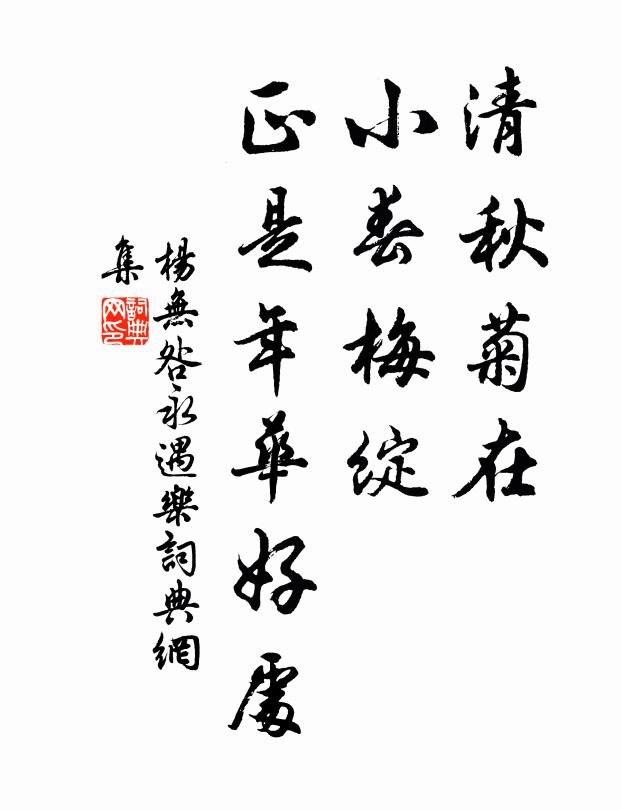 清秋菊在
小春梅綻
正是年華好處
楊無咎永遇樂詞典網
集
詞典
网印